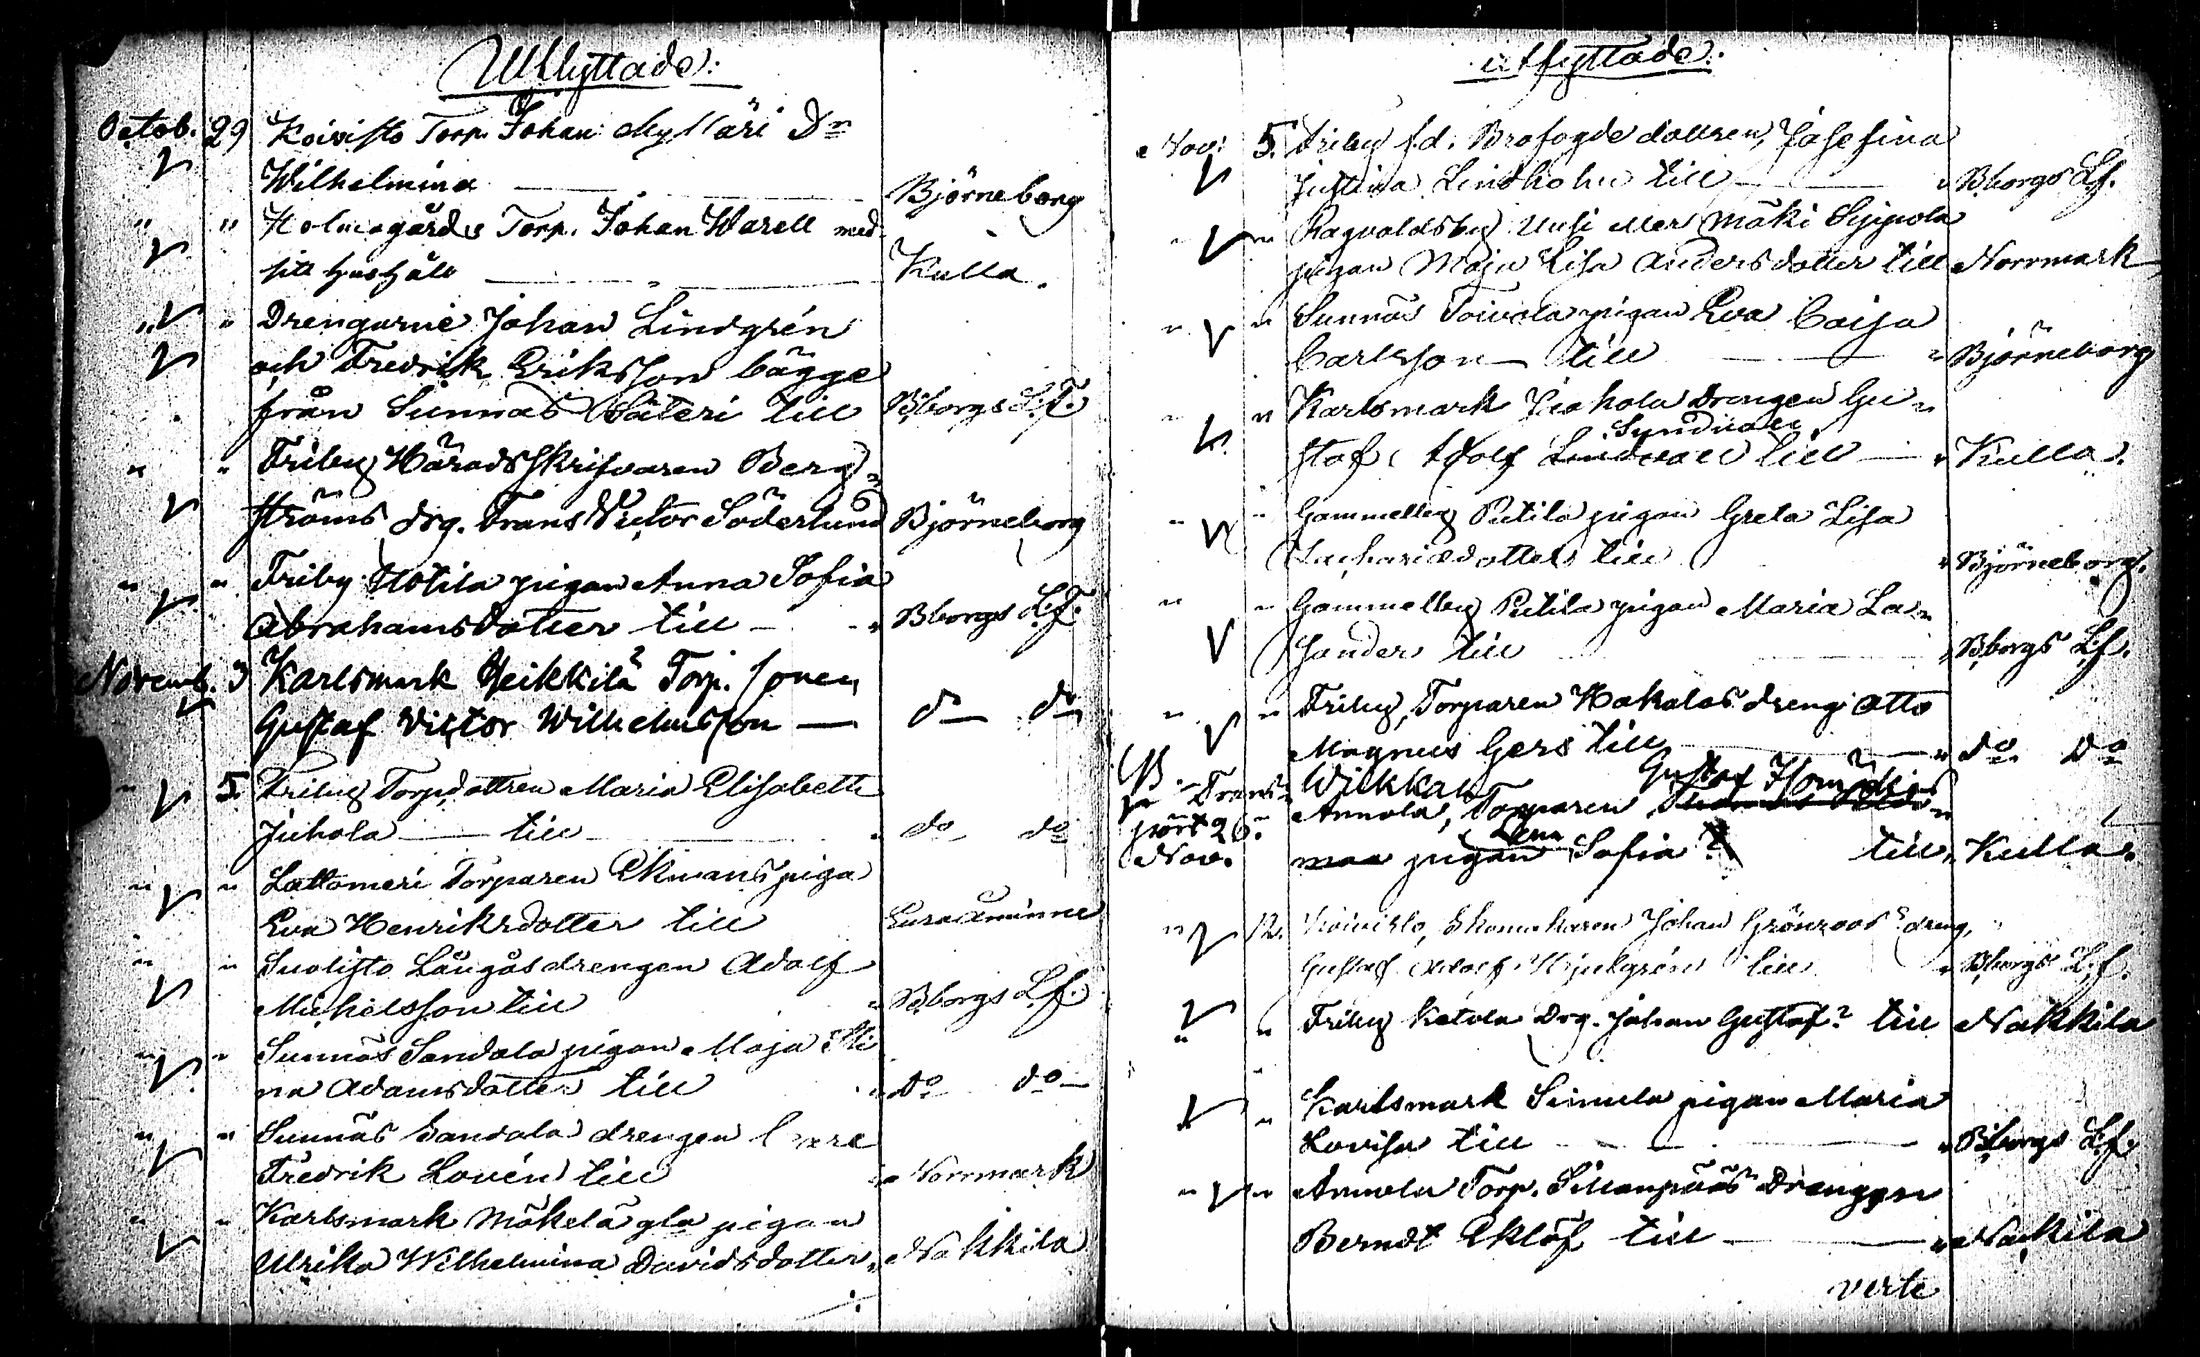 Utflyttade:
Octob. 29 Koivisto Torp. Johan Mylläri Dr
Wilhelmina — Björneborg
" " Holmagårds Torp. Johan Warell med
sitt hushåll — Kulla.
" " Drengarne Johan Lindgrén
och Fredrik Eriksson bägge
från Sunnäs Säteri till Bborgs L.f.
" " Friby Häradsskrifvaren Berg=
ströms drg. Frans Victor Söderlund Björneborg
" " Friby pigan Anna Sofia
Abrahamsdotter till — " Bborgs L.f.
Novemb. 3 Karlsmark Heikkilä Torp. sonen
Gustaf Victor Wilhelmsson — do do
" 5. Friby Torp.dottren Maria Elisabeth
Juhola — till — " do do
" " Lattomeri Torparen Ekmans piga
Eva Henriksdotter till Euraåminne
" " Suolisto Långås drengen Adolf
Michelsson till " Bborgs L.f.
" " Sunnäs Sandala pigan Maja Sti
na Adamsdotter till " do do
" " Sunnäs Sandala drengen Carl
Fredrik Lovén till " Norrmark
" " Karlsmark Mäkelä pigan
Ulrika Wilhelmina Davidsdotter " Nakkila
utflyttade:
Nov: 5. Friby f.d. Brofogde dottren, Josefina
Justina Lindholm till — " Bborgs L.f.
" " Ragvaldsby Uusi eller Mäki Seppola
pigan Maja Lisa Andersdotter till Norrmark
" " Sunnäs Toivola pigan Eva Caisa
Carlsson — till — " Björneborg
" " Karlsmark Drengen Gu=
Lundvall
staf Adolf Lindvall till — " Kulla.
" " Gammelby Putila pigan Greta Lisa
Zachariædotter till " Björneborg.
" " Gammelby Putila pigan Maria La=
sander till " Bborgs L.f.
" " Friby, Torparen Hakalas dreng Otto
Magnus Gers till — " do do
Trans= Wilkkala Gustaf
port 26. Annola, Torparen
Nov. Lena
maa pigan Sofia ? till, Kulla.
" 12. Koivisto, Skomakaren Johan Grönroos dreng,
Gustaf Adolf till " Bborgs L.f.
" " Friby Ketola Drg. Johan Gustaf? till Nakkila
" " Karlsmark Simula pigan Maria
Lovisa till — " Bborgs L.f.
" " Annola Torp. Sillanpääs Drengen
Berndt Eklöf till — " Nakkila
verte